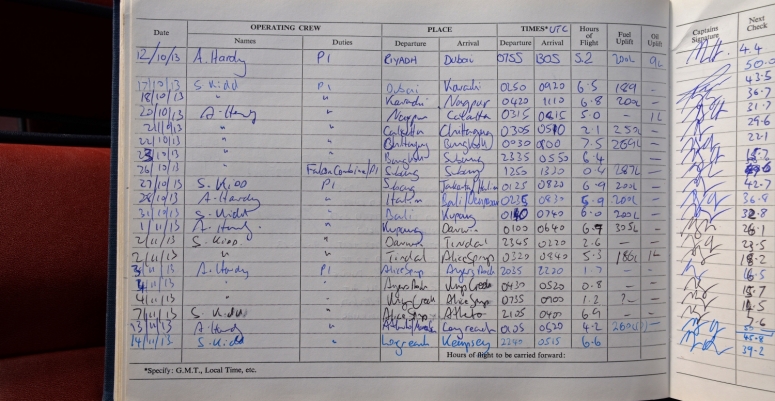 Date OPERATING CREW PLACE TIMES* UTC Hours of Flight Fuel Uplift Oil Uplift Captains Signature Next Check
Names Duties Departure Arrival Departure Arrival
12/10/13 A. Hardy P1 RIYADH Dubai 0755 1305 5.2 200L 9L 4.4
50.0
17/10/13 S. Kidd P1 Dubai Karachi 0250 0920 6.5 189 — 43.5
18/10/13 " " Karachi Nagpur 0420 1110 6.8 200L 36.7
20/10/13 A. Hardy " Nagpur Calcutta 0315 0815 5.0 — 1L 31.7
21/10/13 " " Calcutta Chittagong 0305 0510 2.1 252L — 29.6
22/10/13 " " Chittagong Bangkok 0030 0800 7.5 269L — 22.1
23/10/13 " " Bangkok Subang 2335 0550 6.4 — —
26/10/13 " Subang Subang 1250 1320 0.4 287L —
27/10/13 S. Kidd P1 Subang 0125 0820 6.9 200L — 42.7
28/10/13 A. Hardy " Halim 0235 0830 5.9 200L — 36.8
31/10/13 S. Kidd " Bali Kupang 0140 0740 6.0 200L — 32.8
1/11/13 A. Hardy " Kupang Darwin 0100 0640 6.7 305L — 26.1
2/11/13 S. Kidd " Darwin Tindal 2345 0220 2.6 — — 23.5
2/11/13 " " Tindal Alice Springs 0320 0840 5.3 186L 1L 18.2
3/11/13 A. Hardy P1 Alice Springs 2035 2220 1.7 — 16.5
4/11/13 " " 0430 0520 0.8 — 15.7
4/11/13 " " Alice Springs 0735 0900 1.2 — 14.5
7/11/13 S. Kidd " Alice Springs 2105 0400 6.9 — — 7.6
13/11/13 A. Hardy " Longreach 0105 0520 4.2 260L —
45.8
14/11/13 S. Kidd " Longreach Kempsey 2240 0515 6.6 39.2
Hours of flight to be carried forward:
*Specify: G.M.T., Local Time, etc.